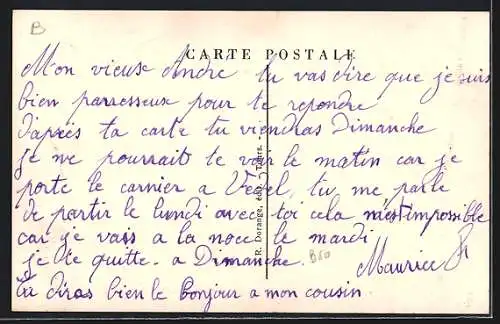 B
CARTE POSTALE
Mon vieux Andre tu vas dire que je suis
bien parresseux pour te repondre
d'après ta carte tu viendras Dimanche
je ne pourrait te voir le matin car je
porte le carnier a Vevel, tu me parle
de partir le lundi avec toi cela m'est impossible
car je vais a la noce le mardi
je te quitte. a Dimanche.
Maurice
tu diras bien le Bonjour a mon cousin
R. Dorange, édit. Tours.